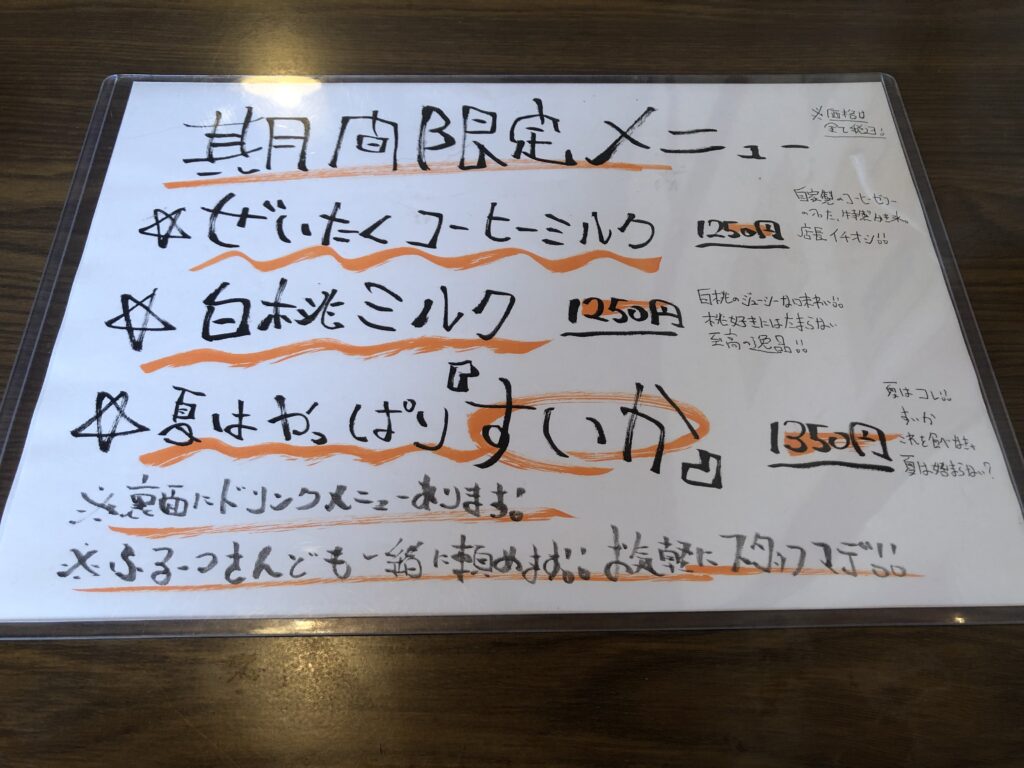 期間限定メニュー
※価格は
全て税込!
☆ぜいたくコーヒーミルク 1250円
自家製のコーヒーゼリー
のった、
店長イチオシ!!
☆白桃ミルク 1250円
白桃のジューシーな味わい!!
桃好きにはたまらない
至高の逸品!!
☆夏はやっぱり『すいか』 1350円
夏はコレ!!
すいか
これを食べなきゃ
夏は始まらない?
※裏面にドリンクメニューあります!
※ふるーつさんども一緒に頼めます!!お気軽にスタッフマデ!!